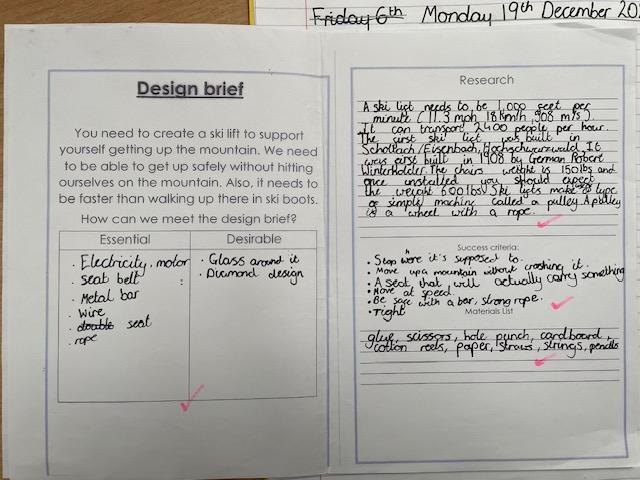 Friday 6th Monday 19th December 20
Design brief
You need to create a ski lift to support
yourself getting up the mountain. We need
to be able to get up safely without hitting
ourselves on the mountain. Also, it needs to
be faster than walking up there in ski boots.
How can we meet the design brief?
Essential
· Electricity, motor
· seat belt
· Metal bar
· Wire
· double seat
· rope
Desirable
· Glass around it
· Diamond design
Research
A ski lift needs to be 1,000 feet per
minute (11.3 mph, 18 km/h, 508 m/s).
It can transport 2400 people per hour.
The first ski lift was built in
Schollach/Eisenbach, Hochschwarzwald. It
was first built in 1908 by German Robert
Winterhalder. The chairs weight is 150lbs and
once installed you should expect
the weight 600lbs. Ski lifts make a type
of simple machine called a pulley. A pulley
is a wheel with a rope.
Success criteria:
· Stop where it's supposed to.
· Move up a mountain without crashing it.
· A seat that will actually carry something
· Move at speed.
· Be safe with a bar, strong rope.
· Tight
Materials List
glue, scissors, hole punch, cardboard,
cotton reels, paper, straws, strings, pencils